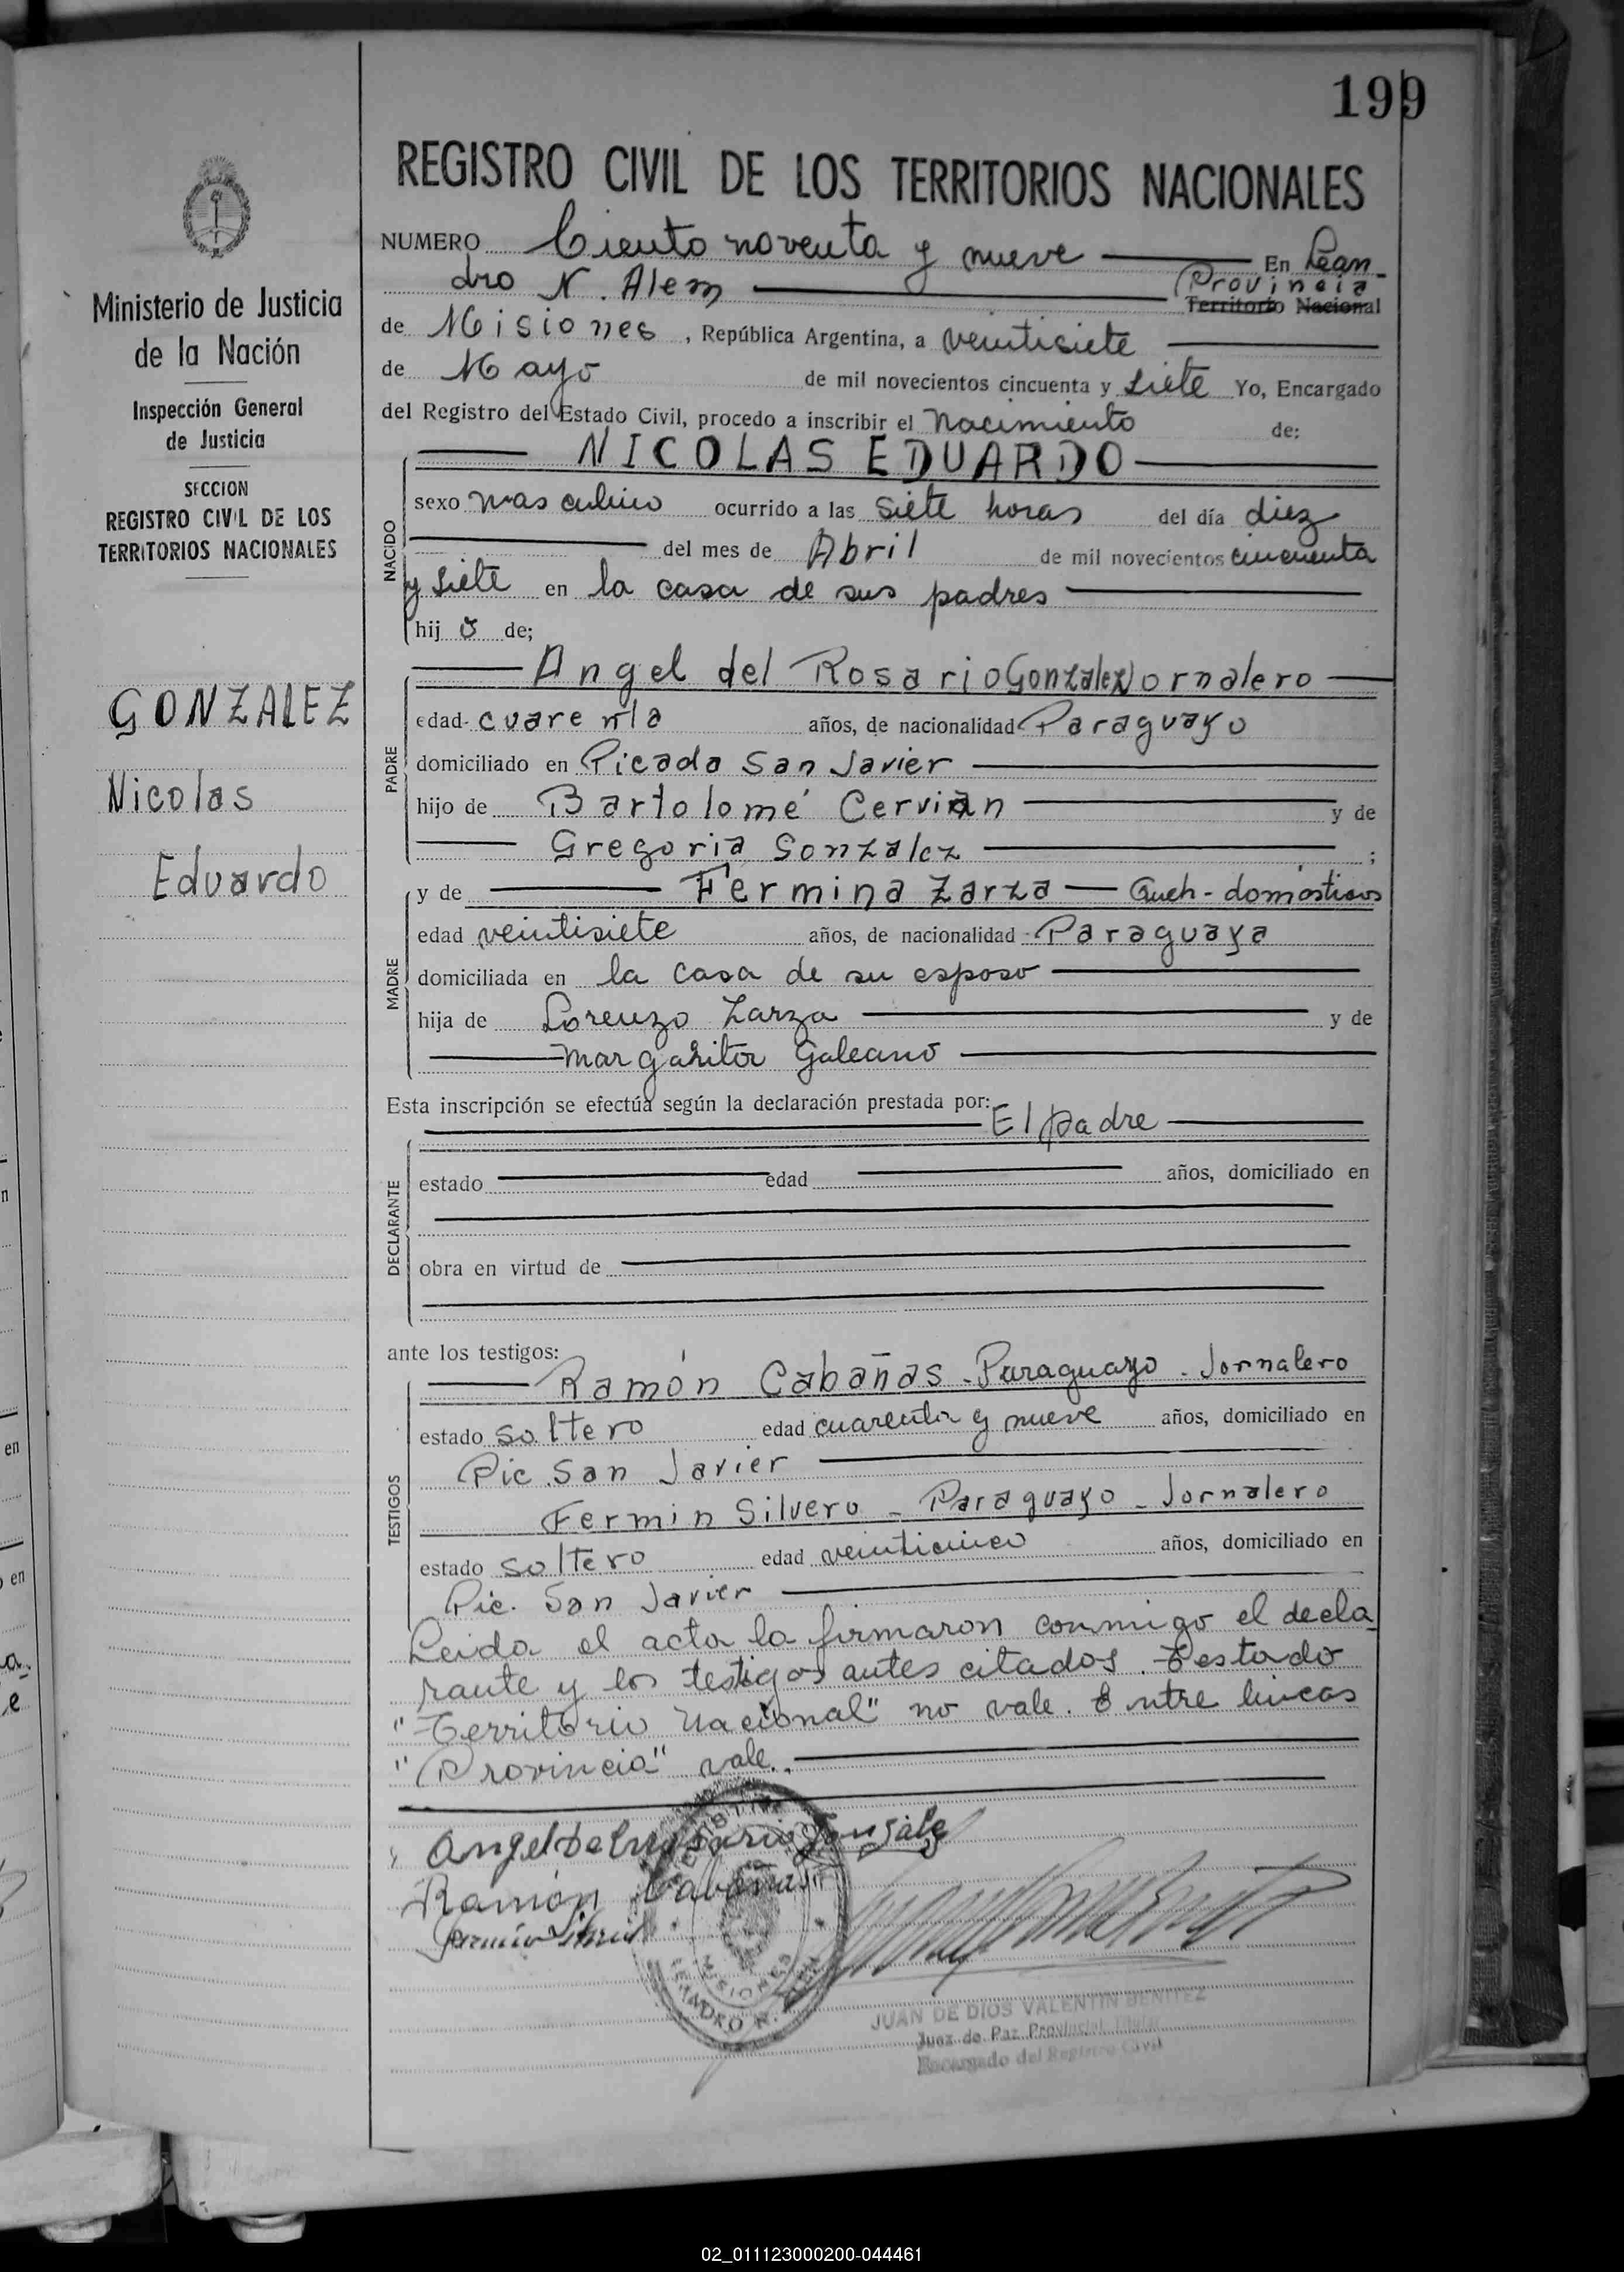 199
REGISTRO CIVIL DE LOS TERRITORIOS NACIONALES
NUMERO Ciento noventa y nueve En Lean-
dro N. Alem Provincia
Territorio Nacional
de Misiones, República Argentina, a veintisiete
de Mayo de mil novecientos cincuenta y siete Yo, Encargado
del Registro del Estado Civil, procedo a inscribir el Nacimiento de:
NICOLAS EDUARDO
sexo masculino ocurrido a las siete horas del día diez
del mes de Abril de mil novecientos cincuenta
y siete en la casa de sus padres
hijo de;
NACIDO
Angel del Rosario Gonzalez Jornalero
edad cuarenta años, de nacionalidad Paraguayo
domiciliado en Picada San Javier
hijo de Bartolomé Cervian y de
Gregoria Gonzalez ;
PADRE
y de Fermina Zarza Queh-domésticos
edad veintisiete años, de nacionalidad Paraguaya
domiciliada en la casa de su esposo
hija de Lorenzo Zarza y de
Margarita Galeano
MADRE
Esta inscripción se efectúa según la declaración prestada por:
El padre
estado edad años, domiciliado en
obra en virtud de
DECLARANTE
ante los testigos:
Ramón Cabañas - Paraguayo - Jornalero
estado soltero edad cuarenta y nueve años, domiciliado en
Pic. San Javier
Fermin Silvero - Paraguayo - Jornalero
estado soltero edad veinticinco años, domiciliado en
Pic. San Javier
TESTIGOS
Leida el acta la firmaron conmigo el decla-
rante y los testigos antes citados. Testado
"Territorio Nacional" no vale. Entre lineas
"Provincia" vale.
Angel Ramón Cabañas
MISIONES
LEANDRO N. ALEM
JUAN DE DIOS VALENTIN BENITEZ
Juez de Paz Provincial Titular
Encargado del Registro Civil
Ministerio de Justicia
de la Nación
Inspección General
de Justicia
SECCION
REGISTRO CIVIL DE LOS
TERRITORIOS NACIONALES
GONZALEZ
Nicolas
Eduardo
02_011123000200-044461